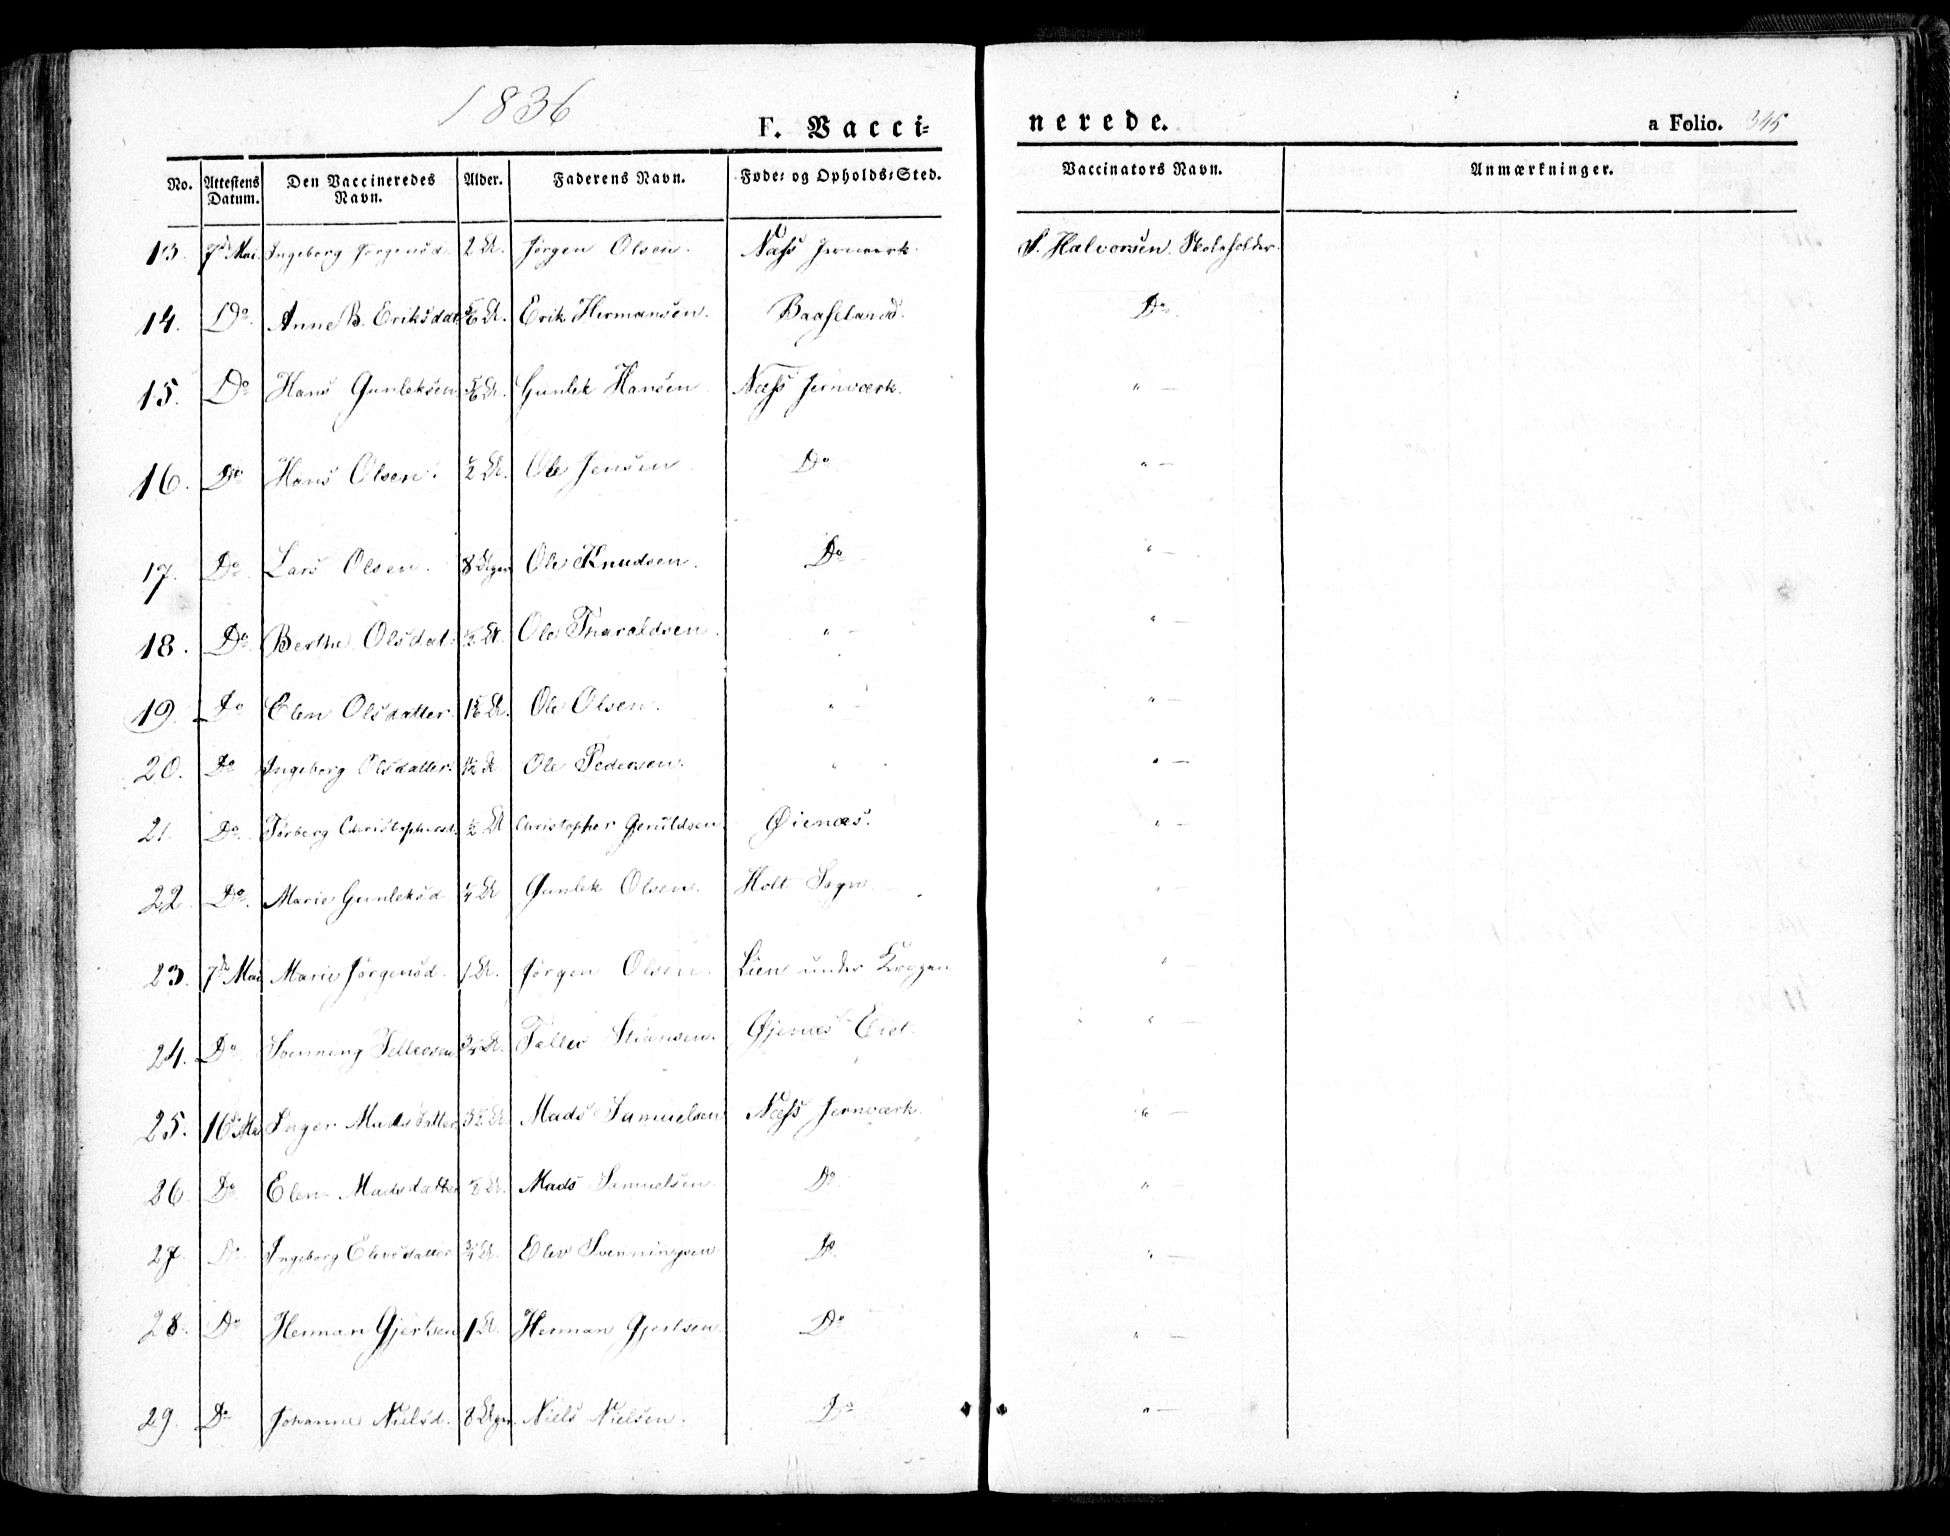 1836
F. Vacci=
nerede.
a Folio. 345
No. Attestens Datum. Den Vaccineredes Navn. Alder. Faderens Navn. Føde= og Opholds=Sted. Vaccinators Navn. Anmærkninger.
13. 7de Mai Ingeborg Jørgensd. 2 Jørgen Olsen. Næss Jernværk. Halvorsen Skoleholder.
14. Do Anne B. Eriksdat Erik Hermansen. Baaseland. Do
15. Do Hans Gunleksen Gunlek Hansen Næss Jernværk. " —
16. Do Hans Olsen. 1/2 Ole Jensen Do " —
17. Do Lars Olsen. 8 Uger Ole Knudsen. Do " —
18. Do Berthe Olsdat. 1/2 Ole Tharaldsen. " — " —
19. Do Elen Olsdatter. Ole Olsen. " — " —
20. Do Ingeborg Olsdatter. Ole Pedersen. " " —
21. Do Torberg Christophersd. 1/2 Christopher Geruldsen Øienæs. " —
22. Do Marie Gunleksd 1/4 Gunlek Olsen. Holt Sogn. " —
23. 7de Mai Marie Jørgensd. 1 Jørgen Olsen. Lien under Krogen " —
24. Do Svenning Tellevsen 3/4 Tellev Stiansen. Øjenæs Eiet. " —
25. 16de Mai Inger Madsdatter Mads Samuelsen Næss Jernværk. " —
26. Do Elen Madsdatter 1/2 Mads Samuelsen Do " —
27. Do Ingeborg Elevsdatter 3/4 Elev Svenningsen Do " —
28. Do Herman Gjertsen 1 Herman Gjertsen. Do " —
29. Do Johanne Nielsd. 8 Uger. Niels Nielsen. Do " —